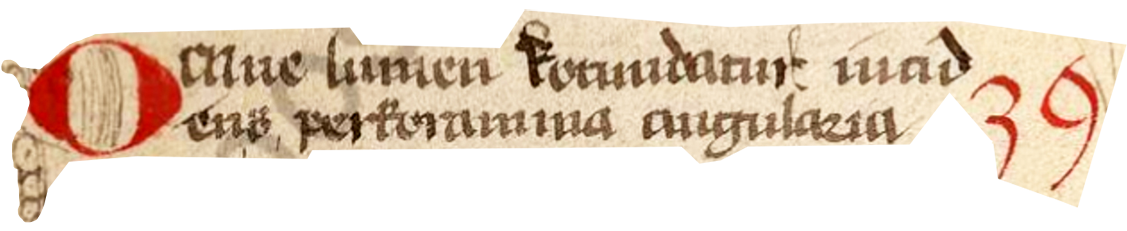 Omne lumen rotundatur incid 39
ens perforamina angularia